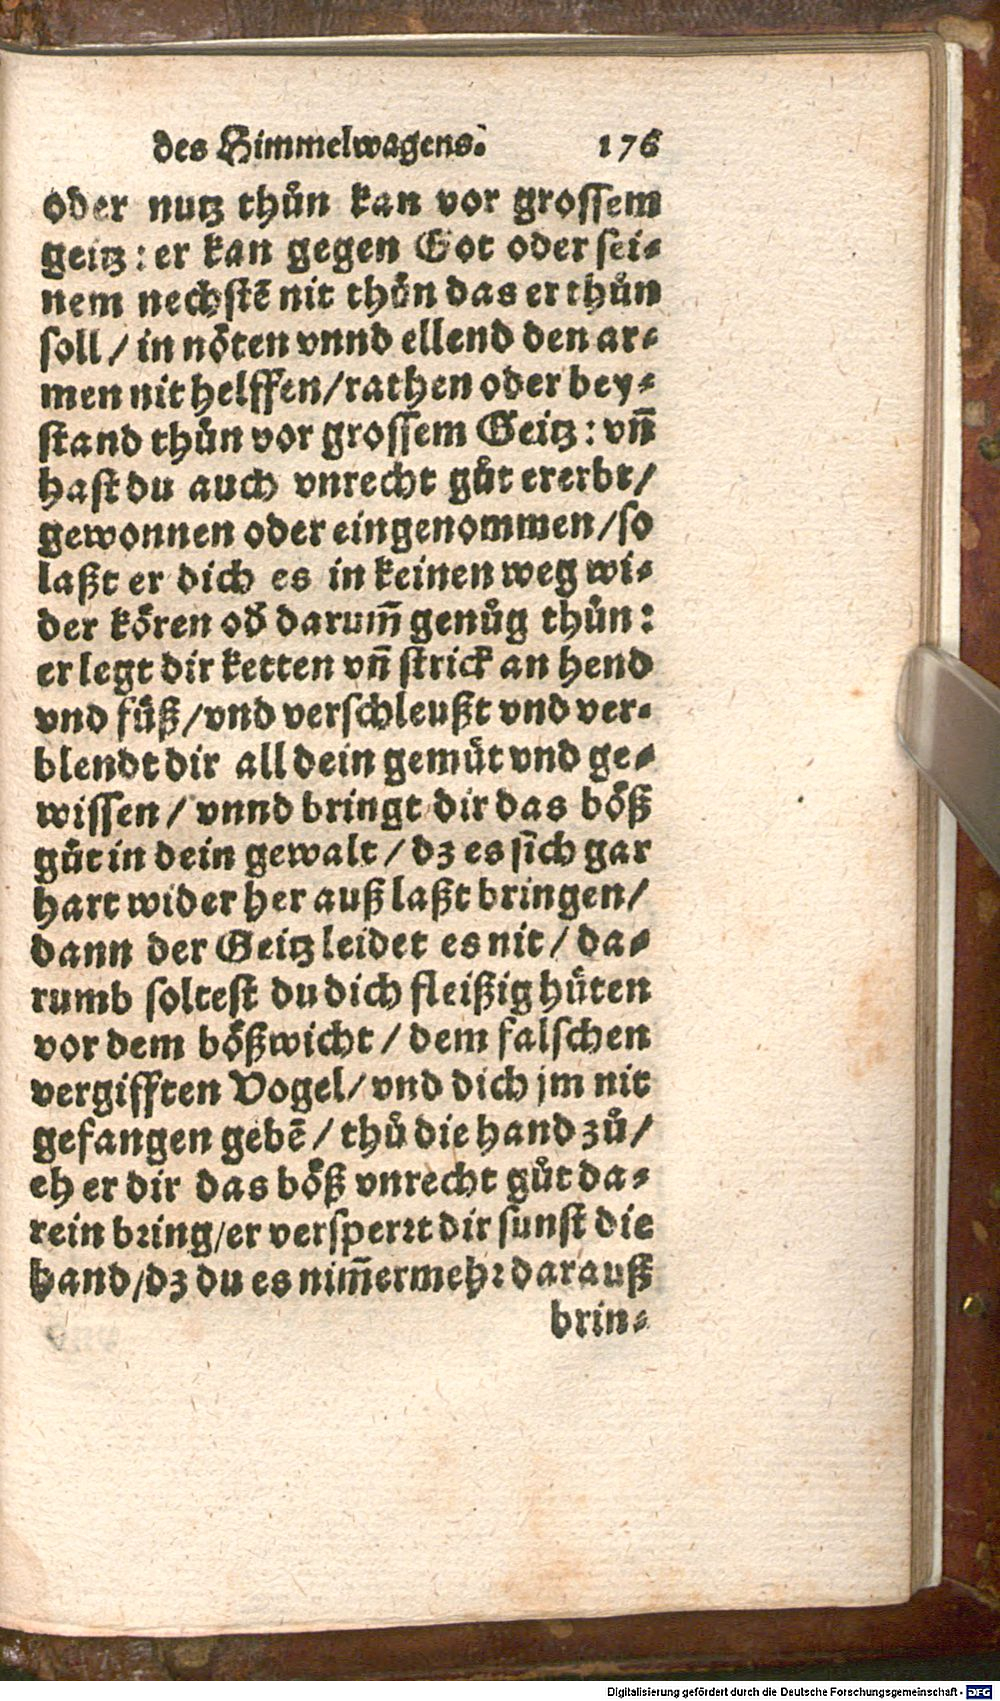 des Himmelwagens. 176
oder nutz thůn kan vor grossem
geitz: er kan gegen Got oder sei⸗
nem nechstē nit thůn das er thůn
soll / in nöten vnnd ellend den ar⸗
men nit helffen/rathen oder bey⸗
stand thůn vor grossem Geitz: vn̄
hast du auch vnrecht gůt ererbt/
gewonnen oder eingenommen/so
laßt er dich es in keinen weg wi⸗
der kören od̕ darum̄ genůg thůn:
er legt dir ketten vn̄ strick an hend
vnd fůß/vnd verschleußt vnd ver⸗
blendt dir all dein gemůt vnd ge⸗
wissen / vnnd bringt dir das böß
gůt in dein gewalt / dz es sich gar
hart wider her auß laßt bringen/
dann der Geitz leidet es nit / da⸗
rumb soltest du dich fleißig hůten
vor dem bößwicht / dem falschen
vergifften Vogel/ vnd dich jm nit
gefangen gebē / thů die hand zů/
eh er dir das böß vnrecht gůt da⸗
rein bring/er versperrt dir sunst die
hand/dz du es nim̄ermehr darauß
brin⸗
Digitalisierung gefördert durch die Deutsche Forschungsgemeinschaft - DFG